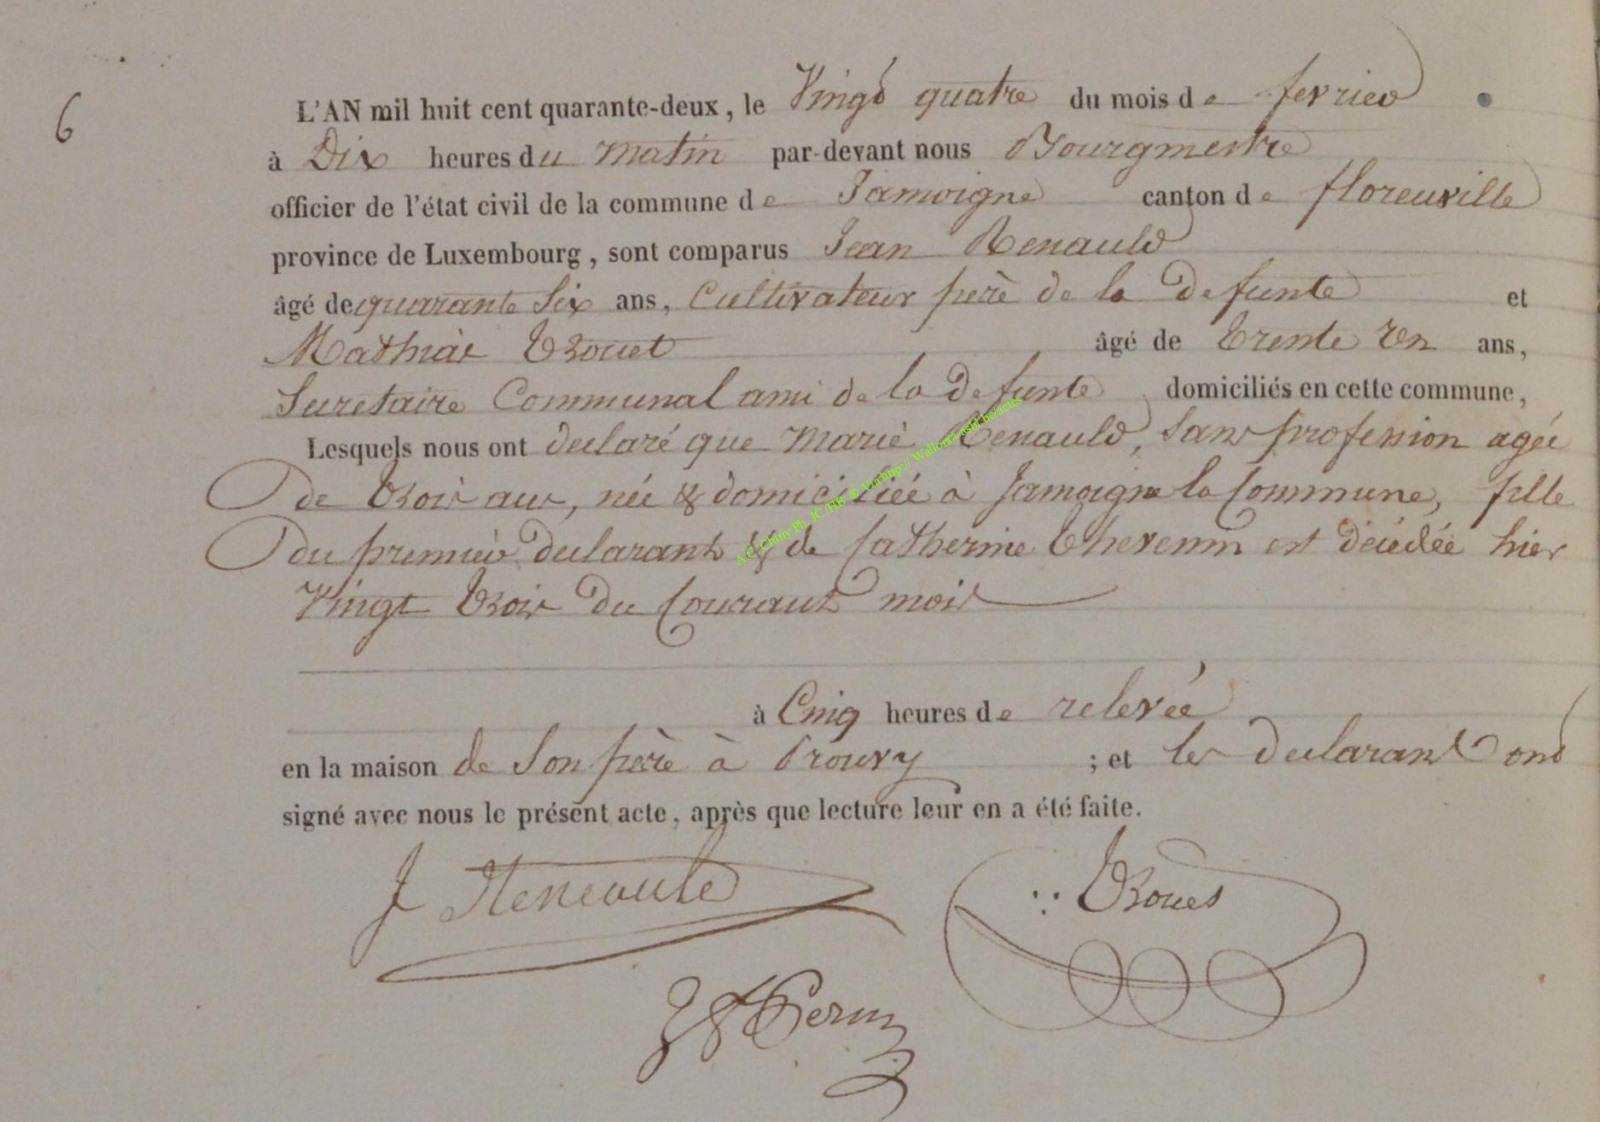 6
L'AN mil huit cent quarante-deux, le Vingt quatre du mois de fevrier
à Dix heures du matin par-devant nous Bourgmestre
officier de l'état civil de la commune de Jamoigne canton de florenville
province de Luxembourg, sont comparus Jean Renauld
âgé de quarante Six ans, Cultivateur père de la defunte et
Mathias Trouet âgé de trente un ans,
Secretaire Communal ami de la defunte domiciliés en cette commune,
Lesquels nous ont declaré que Marie Renauld, sans profession agée
de trois ans, née & domiciliée à Jamoigne la Commune, fille
du premier declarant & de Catherine Thevenin est décédée hier
Vingt trois du Courant mois
à Cinq heures de relevée
en la maison de Son père à Prouvy ; et les declarants ont
signé avec nous le présent acte, après que lecture leur en a été faite.
J Renauld Trouet